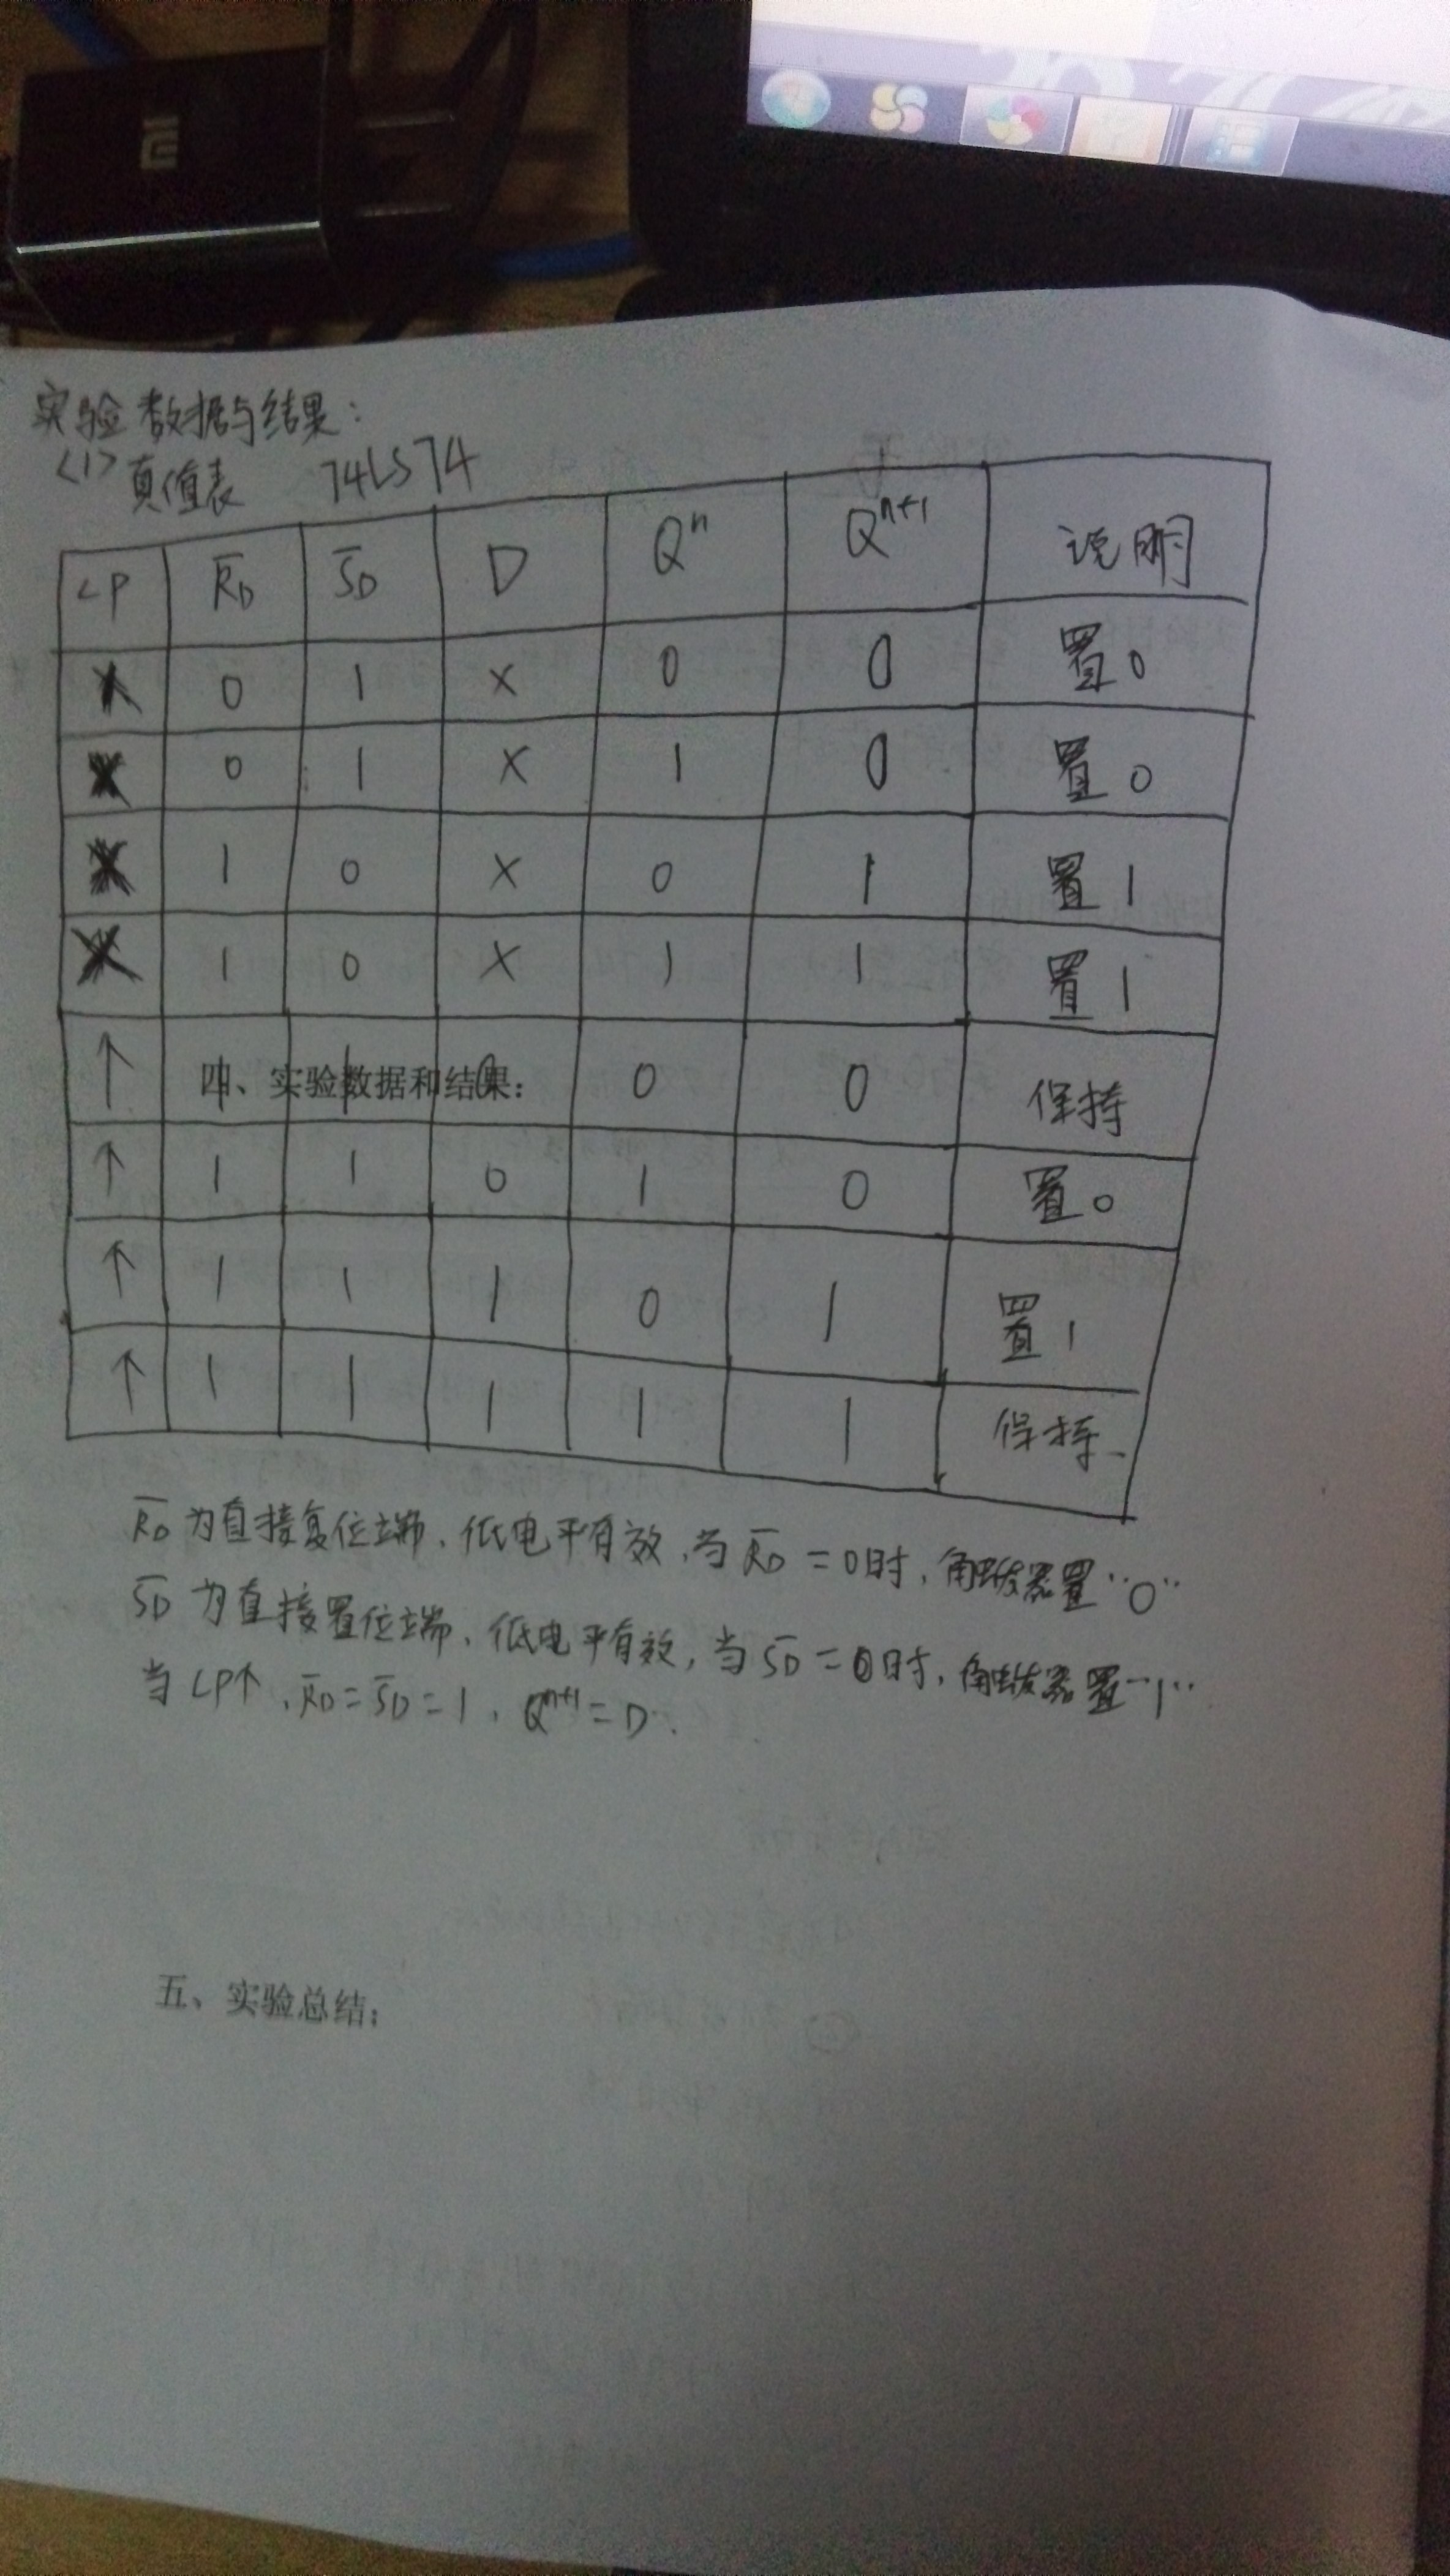 实验数据与结果：
<1> 真值表 74LS74
CP R̅D S̅D D Qⁿ Qⁿ⁺¹ 说明
× 0 1 × 0 0 置0
× 0 1 × 1 0 置0
× 1 0 × 0 1 置1
× 1 0 × 1 1 置1
↑ 1 1 0 0 0 保持
四、实验数据和结果：
↑ 1 1 0 1 0 置0
↑ 1 1 1 0 1 置1
↑ 1 1 1 1 1 保持
R̅D为直接复位端，低电平有效，当R̅D=0时，触发器置“0”
S̅D为直接置位端，低电平有效，当S̅D=0时，触发器置“1”
当CP↑，R̅D=S̅D=1，Qⁿ⁺¹=D.
五、实验总结：